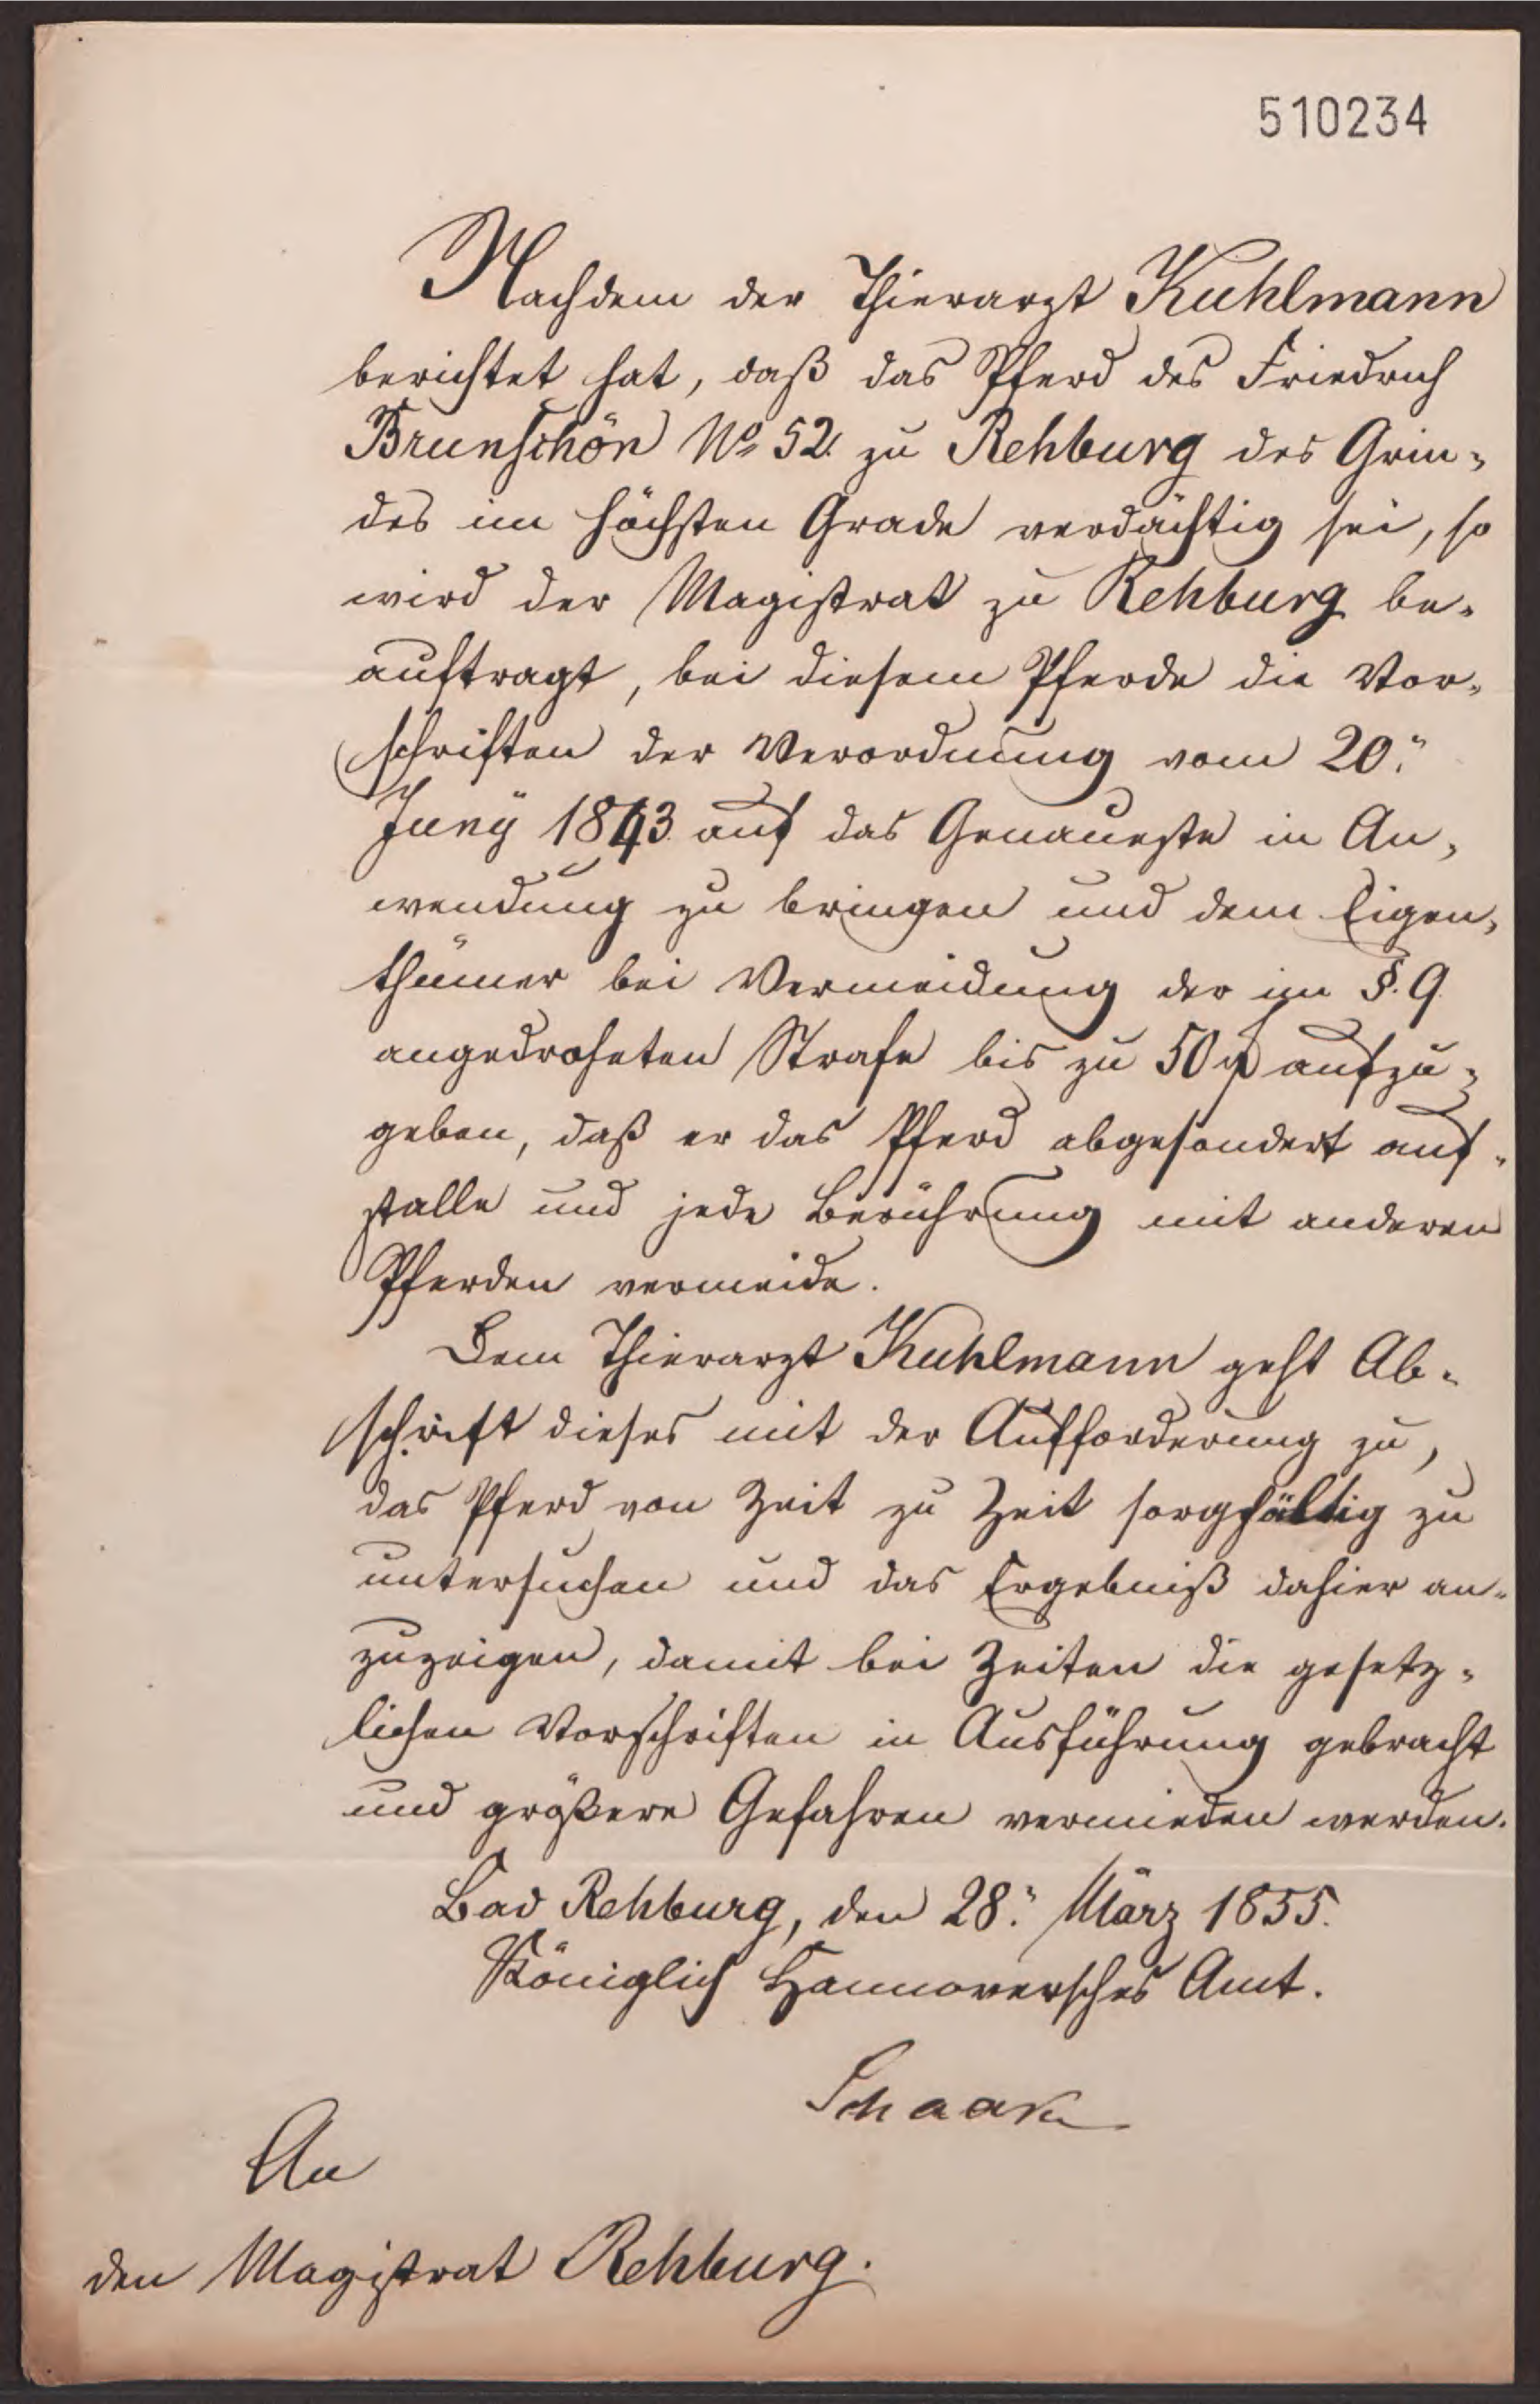 510234
Nachdem der Thierarzt Kuhlmann
berichtet hat, daß das Pferd des Friedrich
Brunschön No 52. zu Rehburg des Grin-
des im höchsten Grade verdächtig sei, so
wird der Magistrat zu Rehburg be-
auftragt, bei diesem Pferde die Vor-
schriften der Verordnung vom 20.
Juny 1843 auf das Genaueste in An-
wendung zu bringen und dem Eigen-
thümer bei Vermeidung der im §. 9
angedroheten Strafe bis zu 50 aufzu-
geben, daß er das Pferd abgesondert auf-
stalle und jede Berührung mit anderen
Pferden vermeide.
Dem Thierarzt Kuhlmann geht Ab-
schrift dieses mit der Aufforderung zu,
das Pferd von Zeit zu Zeit sorgfältig zu
untersuchen und das Ergebniß dahier an-
zuzeigen, damit bei Zeiten die gesetz-
lichen Vorschriften in Ausführung gebracht
und größere Gefahren vermieden werden.
Bad Rehburg, den 28. März 1855.
Königlich Hannoversches Amt.
An
den Magistrat Rehburg.